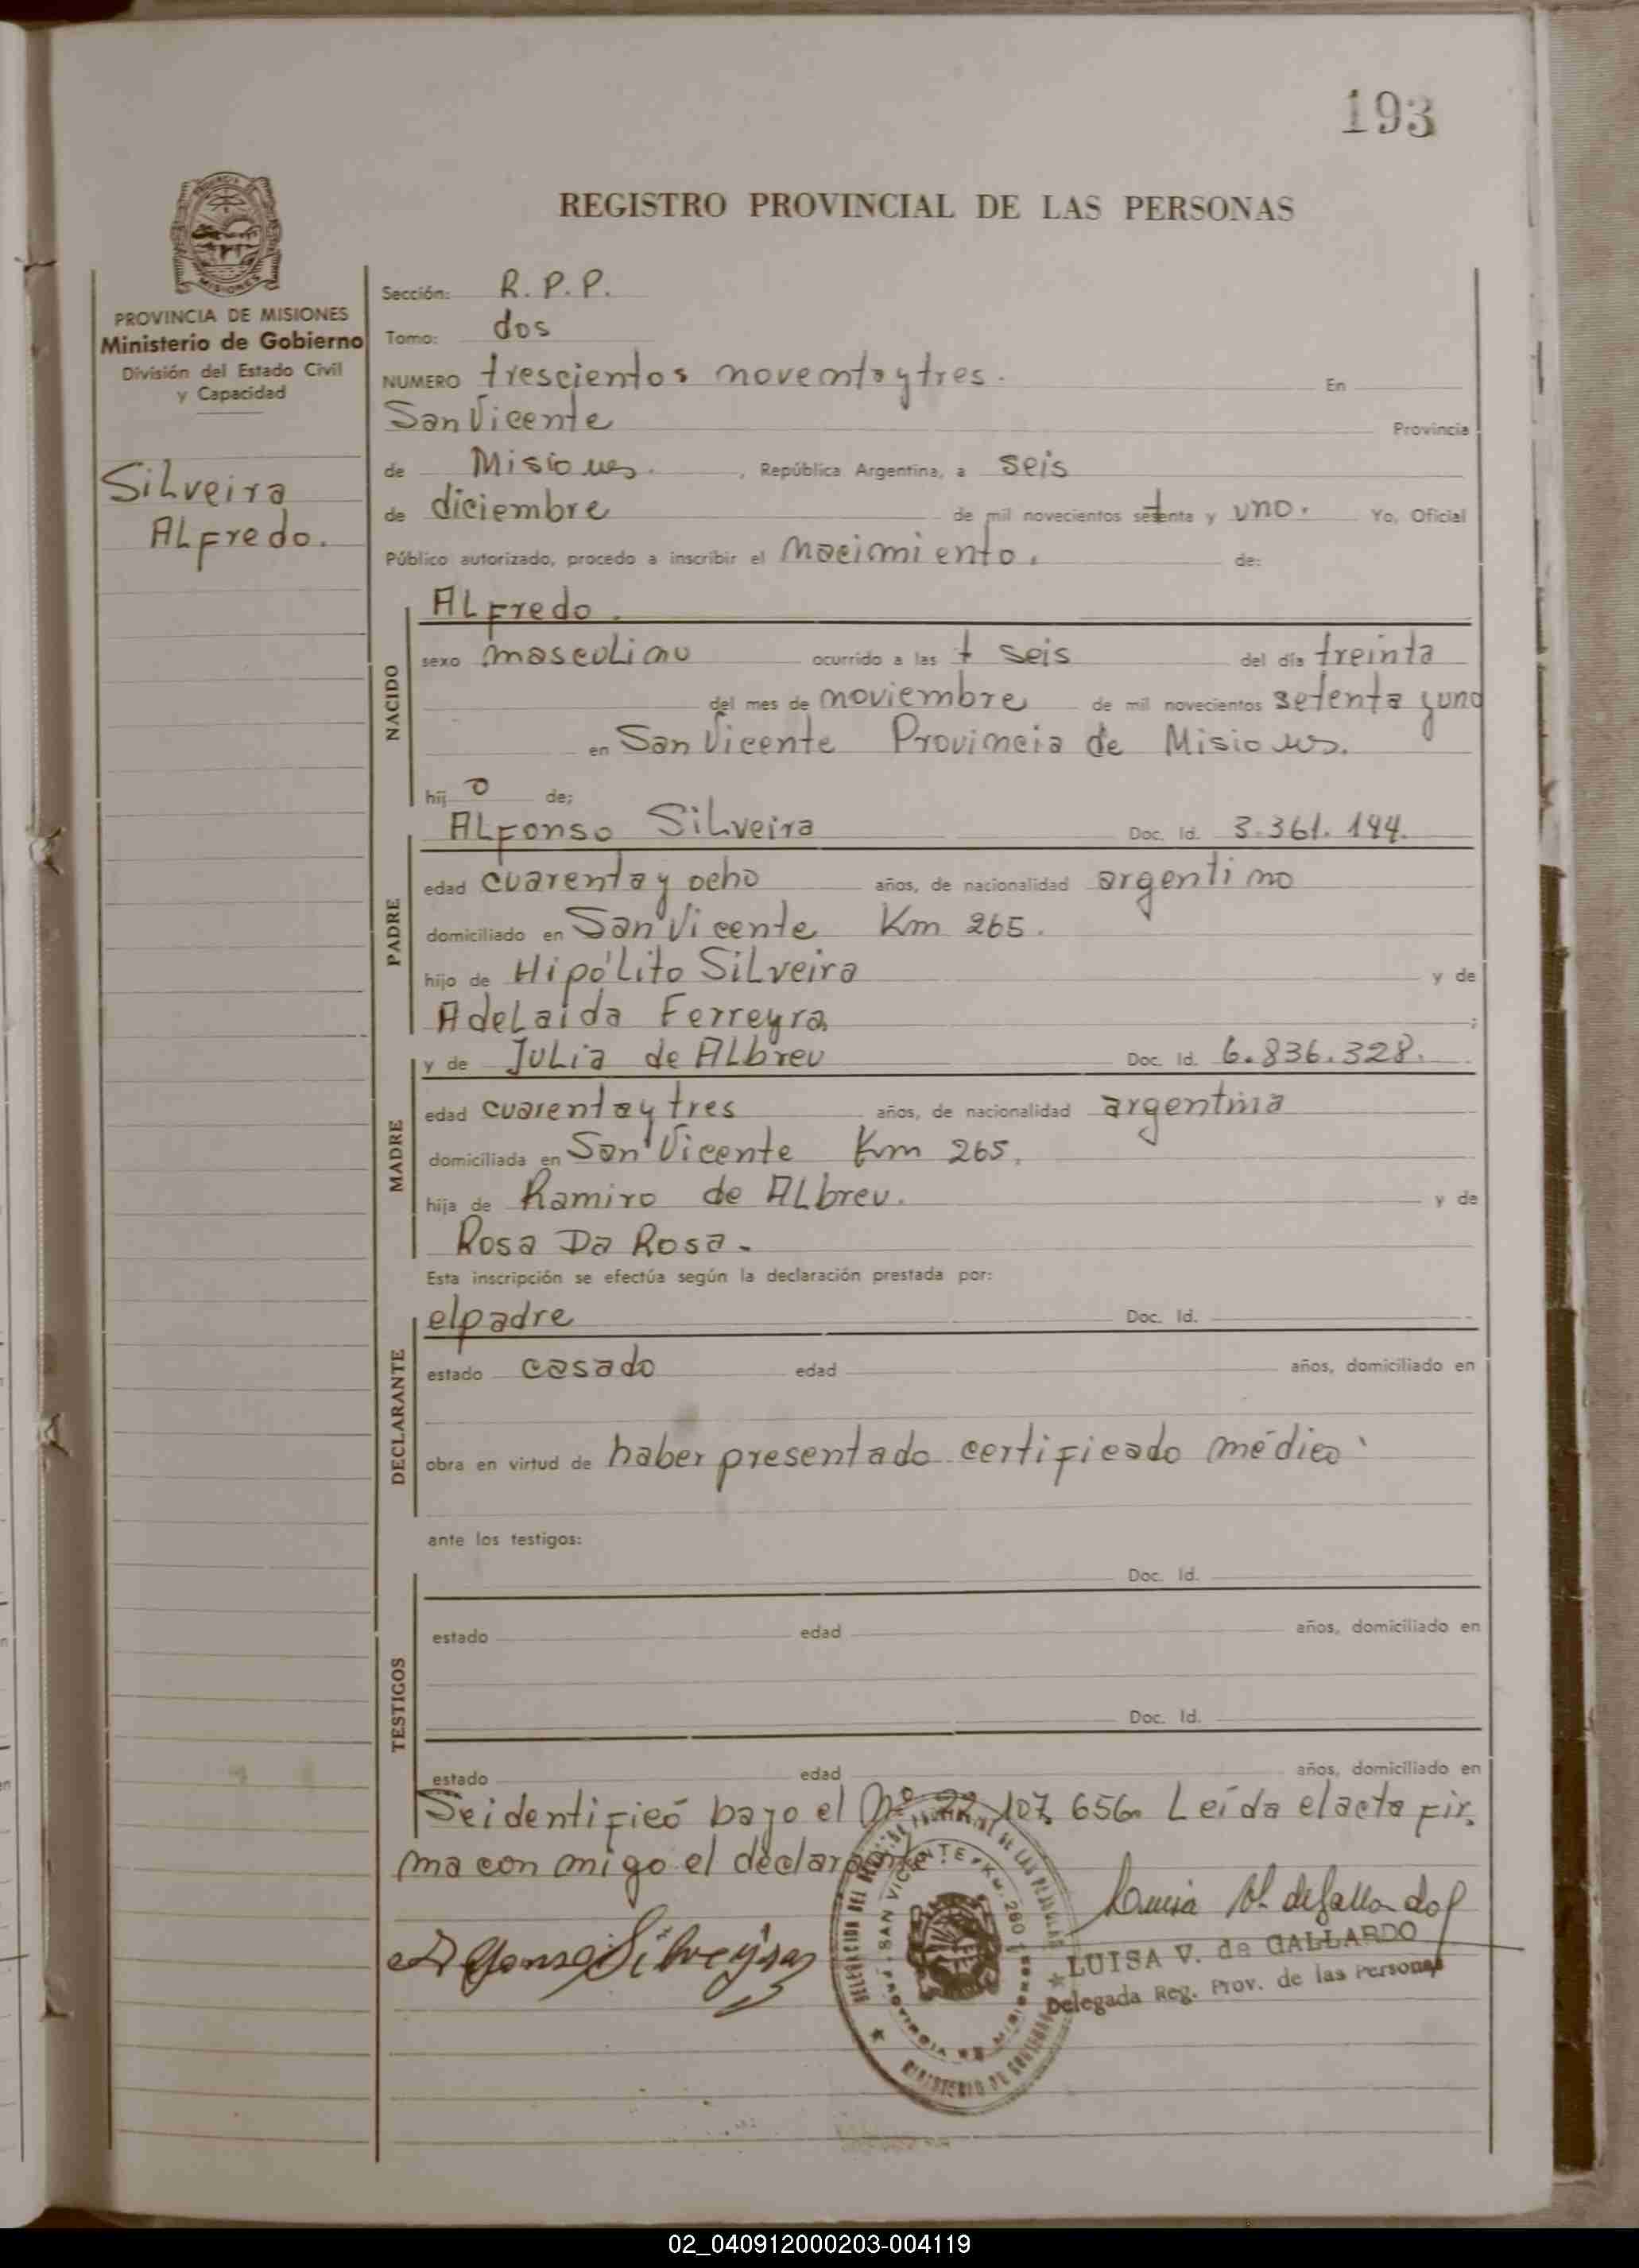 193
REGISTRO PROVINCIAL DE LAS PERSONAS
PROVINCIA DE MISIONES
Ministerio de Gobierno
División del Estado Civil
y Capacidad
Silveira
Alfredo.
Sección: R. P. P.
Tomo: dos
NUMERO trescientos noventa y tres. En
San Vicente Provincia
de Misiones. , República Argentina, a seis
de diciembre de mil novecientos setenta y uno. Yo, Oficial
Público autorizado, procedo a inscribir el nacimiento. de:
NACIDO
Alfredo.
sexo masculino ocurrido a las seis del día treinta
del mes de noviembre de mil novecientos setenta y uno
en San Vicente Provincia de Misiones.
hij o de;
PADRE
Alfonso Silveira Doc. Id. 3.361.144.
edad cuarenta y ocho años, de nacionalidad argentino
domiciliado en San Vicente Km 265.
hijo de Hipólito Silveira y de
Adelaida Ferreyra ;
MADRE
y de Julia de Albreu Doc. Id. 6.836.328.
edad cuarenta y tres años, de nacionalidad argentina
domiciliada en San Vicente Km 265.
hija de Ramiro de Albreu. y de
Rosa Da Rosa.
Esta inscripción se efectúa según la declaración prestada por:
DECLARANTE
el padre Doc. Id.
estado casado edad años, domiciliado en
obra en virtud de haber presentado certificado médico
ante los testigos:
TESTIGOS
Doc. Id.
estado edad años, domiciliado en
Doc. Id.
estado edad años, domiciliado en
Se identificó bajo el Nº 22.107.656. Leída el acta fir
ma con migo el declarante.
Alfonso Silveyra
LUISA V. de GALLARDO
Delegada Reg. Prov. de las Personas
SAN VICENTE - KM. 260
PROVINCIA DE MISIONES
MINISTERIO DE GOBIERNO
02_040912000203-004119